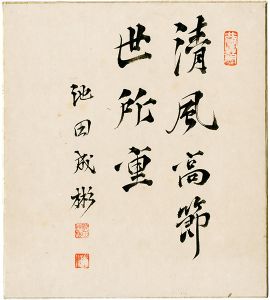 清風高節
世所重
池田成彬